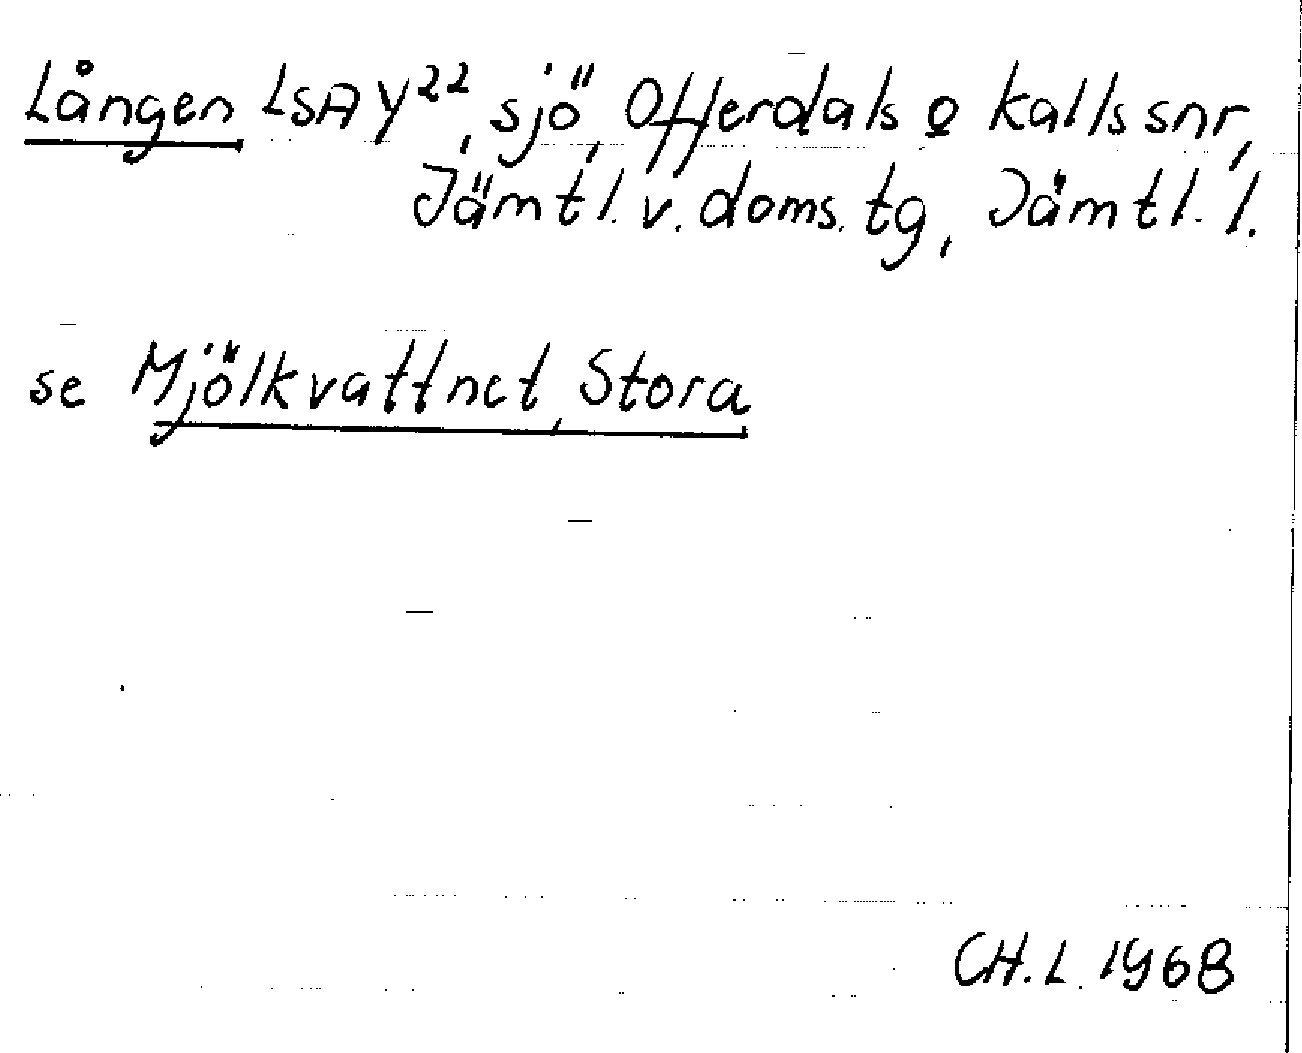 Lången LSA Y²², sjö, Offerdals o Kalls snr,
Jämtl. v. doms. tg, Jämtl. l.
se Mjölkvattnet, Stora
CH.L. 1968